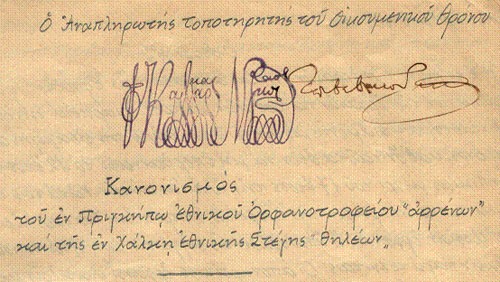 Ὁ Ἀναπληρωτής τοποτηρητής τοῦ Οἰκουμενικοῦ Θρόνου
Κανονισμός
τοῦ ἐν Πριγκήπῳ ἐθνικοῦ Ὀρφανοτροφείου "ἀρρένων"
καί τῆς ἐν Χάλκῃ ἐθνικῆς Στέγης θηλέων„